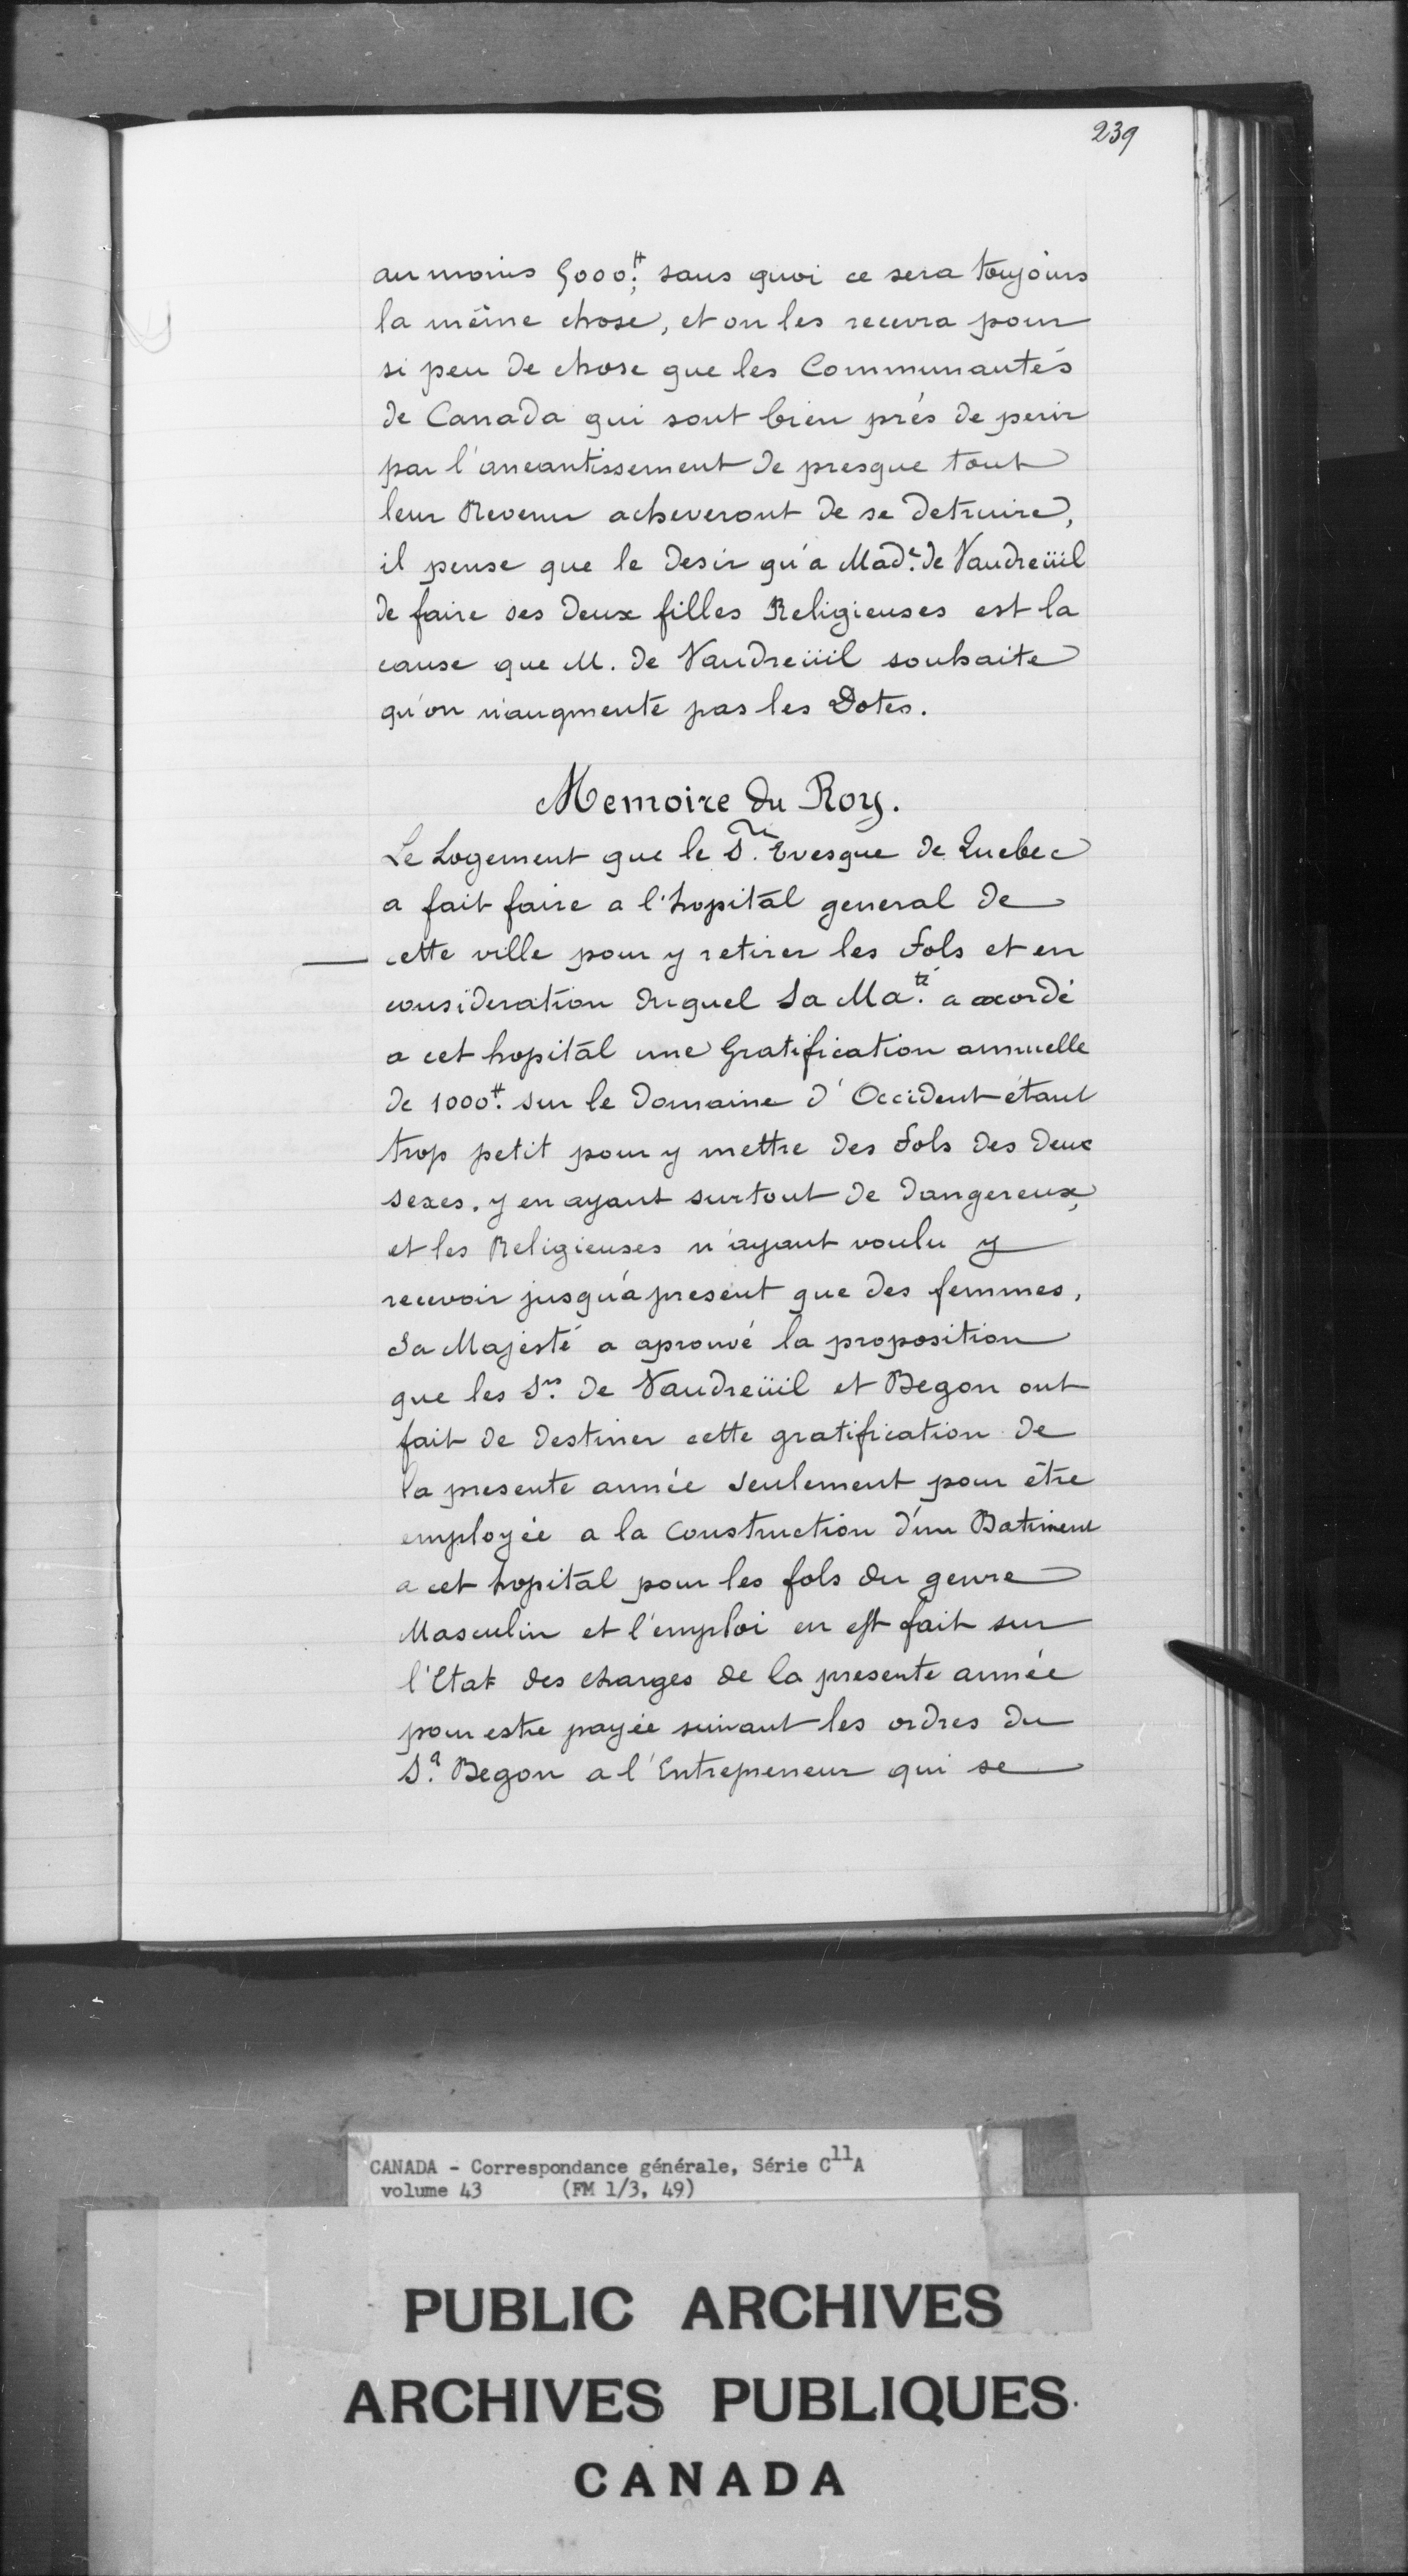 239
au moins 5000.# sans quoi ce sera toujours
la même chose, et on les recevra pour
si peu de chose que les Communautés
de Canada qui sont bien prés de perir
par l'aneantissement de presque tout
leur Revenu acheveront de se detruire,
il pense que le desir qu'a Mad.e de Vaudreüil
de faire ses deux filles Religieuses est la
cause que M. de Vaudreüil souhaite
qu'on n'augmente pas les Dotes.
Memoire du Roy.
Le Logement que le S.r Evesque de Quebec
a fait faire a l'hopital general de
cette ville pour y retirer les fols et en
consideration duquel Sa Ma.té a accordé
a cet hopital une Gratification annuelle
de 1000.# sur le Domaine d'Occident étant
trop petit pour y mettre des fols des deux
sexes. y en ayant surtout de dangereux,
et les Religieuses n'ayant voulu y
recevoir jusqu'à present que des femmes,
Sa Majesté a aprouvé la proposition
que les S.rs de Vaudreüil et Begon ont
fait de destiner cette gratification de
la presente année seulement pour être
employée a la Construction d'un Batiment
a cet hopital pour les fols du genre
Masculin et l'emploi en est fait sur
l'Etat des charges de la presente année
pour estre payée suivant les ordres du
S.r Begon a l'Entrepreneur qui se
CANADA - Correspondance générale, Série C11A
volume 43 (FM 1/3, 49)
PUBLIC ARCHIVES
ARCHIVES PUBLIQUES
CANADA